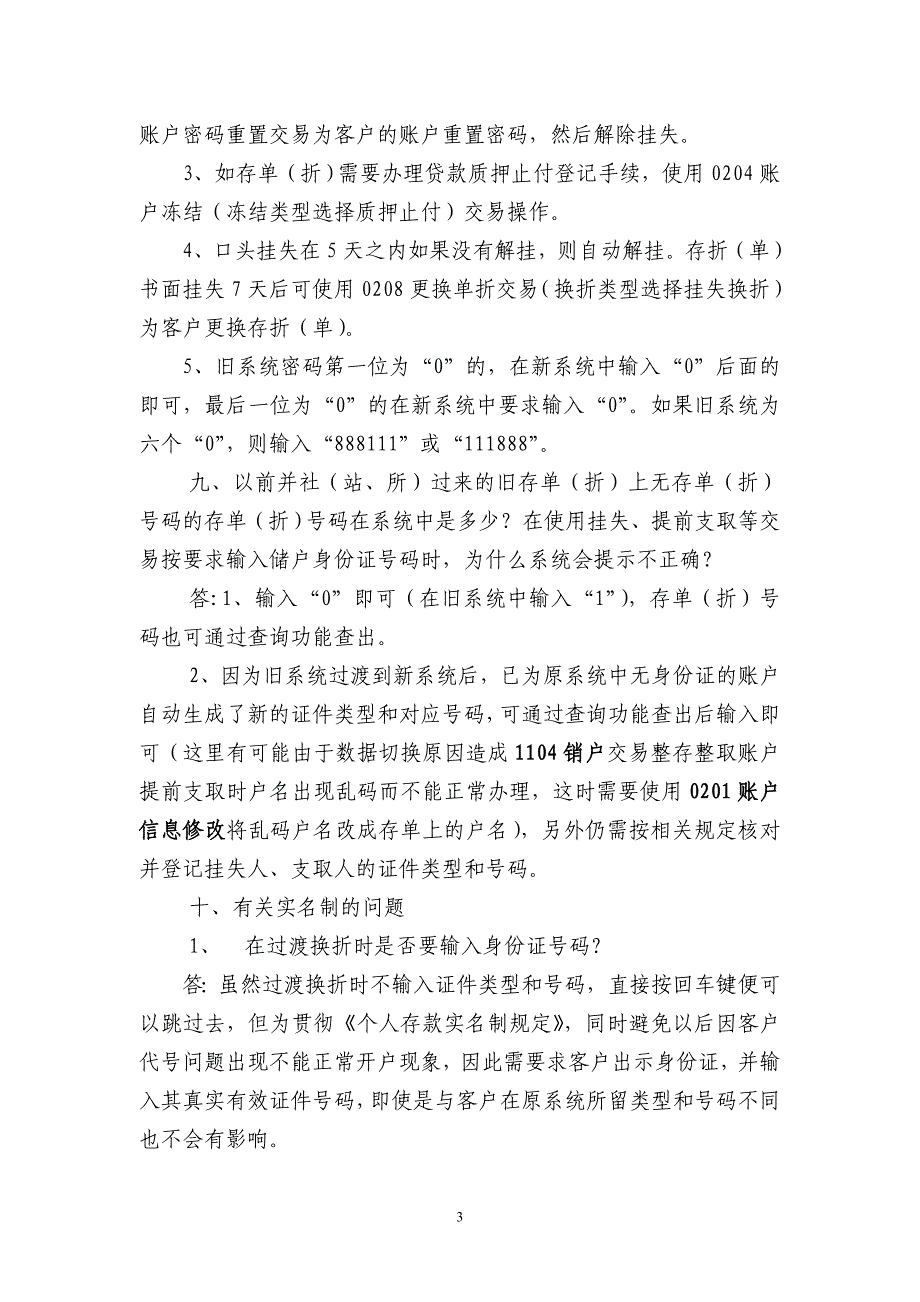 账户密码重置交易为客户的账户重置密码，然后解除挂失。
3、如存单（折）需要办理贷款质押止付登记手续，使用 0204 账
户冻结（冻结类型选择质押止付）交易操作。
4、口头挂失在 5 天之内如果没有解挂，则自动解挂。存折（单）
书面挂失 7 天后可使用 0208 更换单折交易（换折类型选择挂失换折）
为客户更换存折（单）。
5、旧系统密码第一位为“0”的，在新系统中输入“0”后面的
即可，最后一位为“0”的在新系统中要求输入“0”。如果旧系统为
六个“0”，则输入“888111”或“111888”。
九、以前并社（站、所）过来的旧存单（折）上无存单（折）
号码的存单（折）号码在系统中是多少？在使用挂失、提前支取等交
易按要求输入储户身份证号码时，为什么系统会提示不正确？
答：1、输入“0”即可（在旧系统中输入“1”），存单（折）号
码也可通过查询功能查出。
2、因为旧系统过渡到新系统后，已为原系统中无身份证的账户
自动生成了新的证件类型和对应号码，可通过查询功能查出后输入即
可（这里有可能由于数据切换原因造成 1104 销户交易整存整取账户
提前支取时户名出现乱码而不能正常办理，这时需要使用 0201 账户
信息修改将乱码户名改成存单上的户名），另外仍需按相关规定核对
并登记挂失人、支取人的证件类型和号码。
十、有关实名制的问题
1、 在过渡换折时是否要输入身份证号码？
答：虽然过渡换折时不输入证件类型和号码，直接按回车键便可
以跳过去，但为贯彻《个人存款实名制规定》，同时避免以后因客户
代号问题出现不能正常开户现象，因此需要求客户出示身份证，并输
入其真实有效证件号码，即使是与客户在原系统所留类型和号码不同
也不会有影响。
3